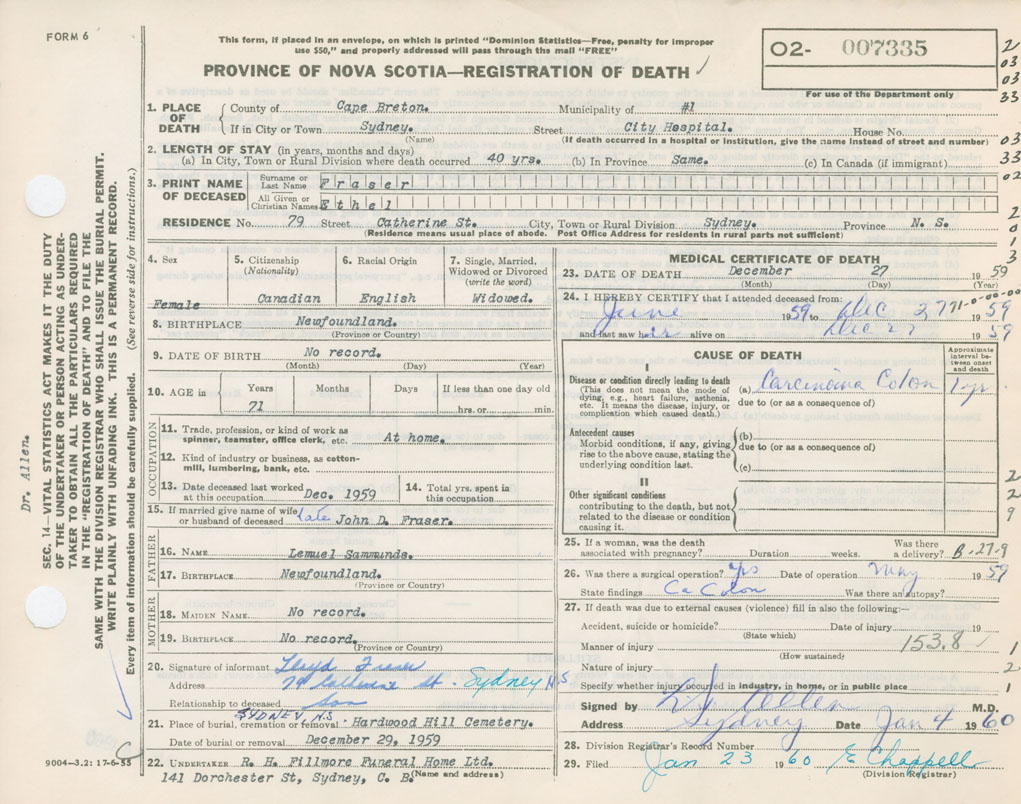 FORM 6
This form, if placed in an envelope, on which is printed "Dominion Statistics—Free, penalty for improper
use $50," and properly addressed will pass through the mail "FREE"
PROVINCE OF NOVA SCOTIA—REGISTRATION OF DEATH ✓
O2- 007335
For use of the Department only
2
03
03
33
03
33
02
2
0
1
3
1. PLACE OF DEATH
County of Cape Breton. Municipality of #1
If in City or Town Sydney. Street City Hospital. House No.
(Name) (If death occurred in a hospital or institution, give the name instead of street and number)
2. LENGTH OF STAY (in years, months and days)
(a) In City, Town or Rural Division where death occurred 40 yrs. (b) In Province Same. (c) In Canada (if immigrant)
3. PRINT NAME OF DECEASED
Surname or Last Name Fraser
All Given or Christian Names Ethel
RESIDENCE No. 79 Street Catherine St. City, Town or Rural Division Sydney. Province N. S.
(Residence means usual place of abode. Post Office Address for residents in rural parts not sufficient)
4. Sex
Female
5. Citizenship
(Nationality)
Canadian
6. Racial Origin
English
7. Single, Married,
Widowed or Divorced
(write the word)
Widowed.
8. BIRTHPLACE Newfoundland.
(Province or Country)
9. DATE OF BIRTH No record.
(Month) (Day) (Year)
10. AGE in
Years Months Days If less than one day old
71 hrs. or min.
OCCUPATION
11. Trade, profession, or kind of work as
spinner, teamster, office clerk, etc. At home.
12. Kind of industry or business, as cotton-
mill, lumbering, bank, etc.
13. Date deceased last worked
at this occupation Dec. 1959
14. Total yrs. spent in
this occupation
15. If married give name of wife
or husband of deceased late John D. Fraser.
FATHER
16. NAME Lemuel Sammunds.
17. BIRTHPLACE Newfoundland.
(Province or Country)
MOTHER
18. MAIDEN NAME. No record.
19. BIRTHPLACE No record.
(Province or Country)
20. Signature of informant Lloyd Fraser
Address 79 Catherine St. Sydney N.S
Relationship to deceased Son
SYDNEY, N.S
21. Place of burial, cremation or removal Hardwood Hill Cemetery.
Date of burial or removal December 29, 1959
22. UNDERTAKER R. H. Fillmore Funeral Home Ltd.
141 Dorchester St, Sydney, C. B. (Name and address)
MEDICAL CERTIFICATE OF DEATH
23. DATE OF DEATH December 27 1959
(Month) (Day) (Year)
24. I HEREBY CERTIFY that I attended deceased from:
June 1959 to Dec 27 1959
71-0-00-00
and last saw her alive on Dec 27 1959
CAUSE OF DEATH
Approximate
interval be-
tween onset
and death
I
Disease or condition directly leading to death
(This does not mean the mode of
dying, e.g., heart failure, asthenia,
etc. It means the disease, injury, or
complication which caused death.)
(a) Carcinoma Colon 1 yr.
due to (or as a consequence of)
Antecedent causes
Morbid conditions, if any, giving
rise to the above cause, stating the
underlying condition last.
(b)
due to (or as a consequence of)
(c)
II
Other significant conditions
contributing to the death, but not
related to the disease or condition
causing it.
2
2
9
25. If a woman, was the death
associated with pregnancy? Duration weeks. Was there
a delivery? B-27-9
26. Was there a surgical operation? yes Date of operation May 1959
State findings Ca Colon Was there an autopsy?
27. If death was due to external causes (violence) fill in also the following:—
Accident, suicide or homicide? Date of injury 19
(State which)
Manner of injury 153.8 1
(How sustained)
Nature of injury 2
Specify whether injury occurred in industry, in home, or in public place 1
Signed by Allen M.D.
Address Sydney Date Jan 4 1960
28. Division Registrar's Record Number
29. Filed Jan 23 1960 E Chappell
(Division Registrar)
Dr. Allen.
SEC. 14—VITAL STATISTICS ACT MAKES IT THE DUTY
OF THE UNDERTAKER OR PERSON ACTING AS UNDER-
TAKER TO OBTAIN ALL THE PARTICULARS REQUIRED
IN THE "REGISTRATION OF DEATH" AND TO FILE THE
SAME WITH THE DIVISION REGISTRAR WHO SHALL ISSUE THE BURIAL PERMIT.
WRITE PLAINLY WITH UNFADING INK. THIS IS A PERMANENT RECORD.
Every item of information should be carefully supplied. (See reverse side for instructions.)
C
9004—3.2: 17-6-55